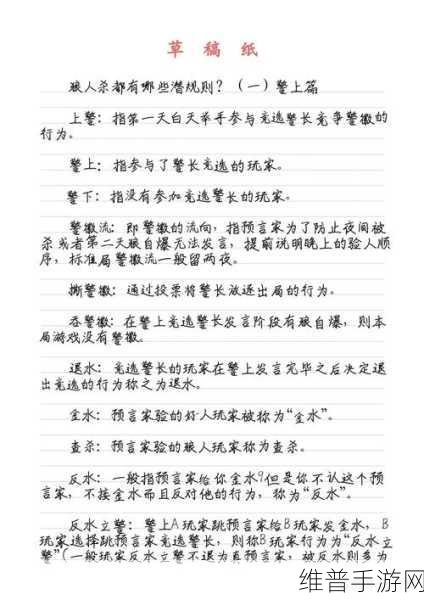 草稿纸
狼人杀都有哪些潜规则？(一)警上篇
上警：指第一天白天举手参与竞选警长竞争警徽的
行为。
警上：指参与了警长竞选的玩家。
警下：指没有参加竞选警长的玩家。
警徽流：即警徽的流向，指预言家为了防止夜间被
杀或者第二天狼自爆无法发言，提前说明晚上的验人顺
序，标准局警徽流一般留两夜。
撕警徽：通过投票将警长放逐出局的行为。
吞警徽：在警上竞选警长发言阶段有狼自爆，则本
局游戏没有警徽。
退水：竞选警长的玩家在警上发言完毕之后决定退
出竞选的行为称之为退水。
金水：预言家验的好人玩家被称为“金水”。
查杀：预言家验的狼人玩家称为查杀。
反水：一般指预言家给你金水9但是你不认这个预
言家，不接金水而且反对他的行为，称为“反水”。
反水立警：警上A玩家跳预言家给B玩家发金水，B
玩家选择跳预言家竞选警长，则称B玩家行为为“反水立
警”(一般玩家反水立警不退为真预言家，被反水则多为
维普手游网